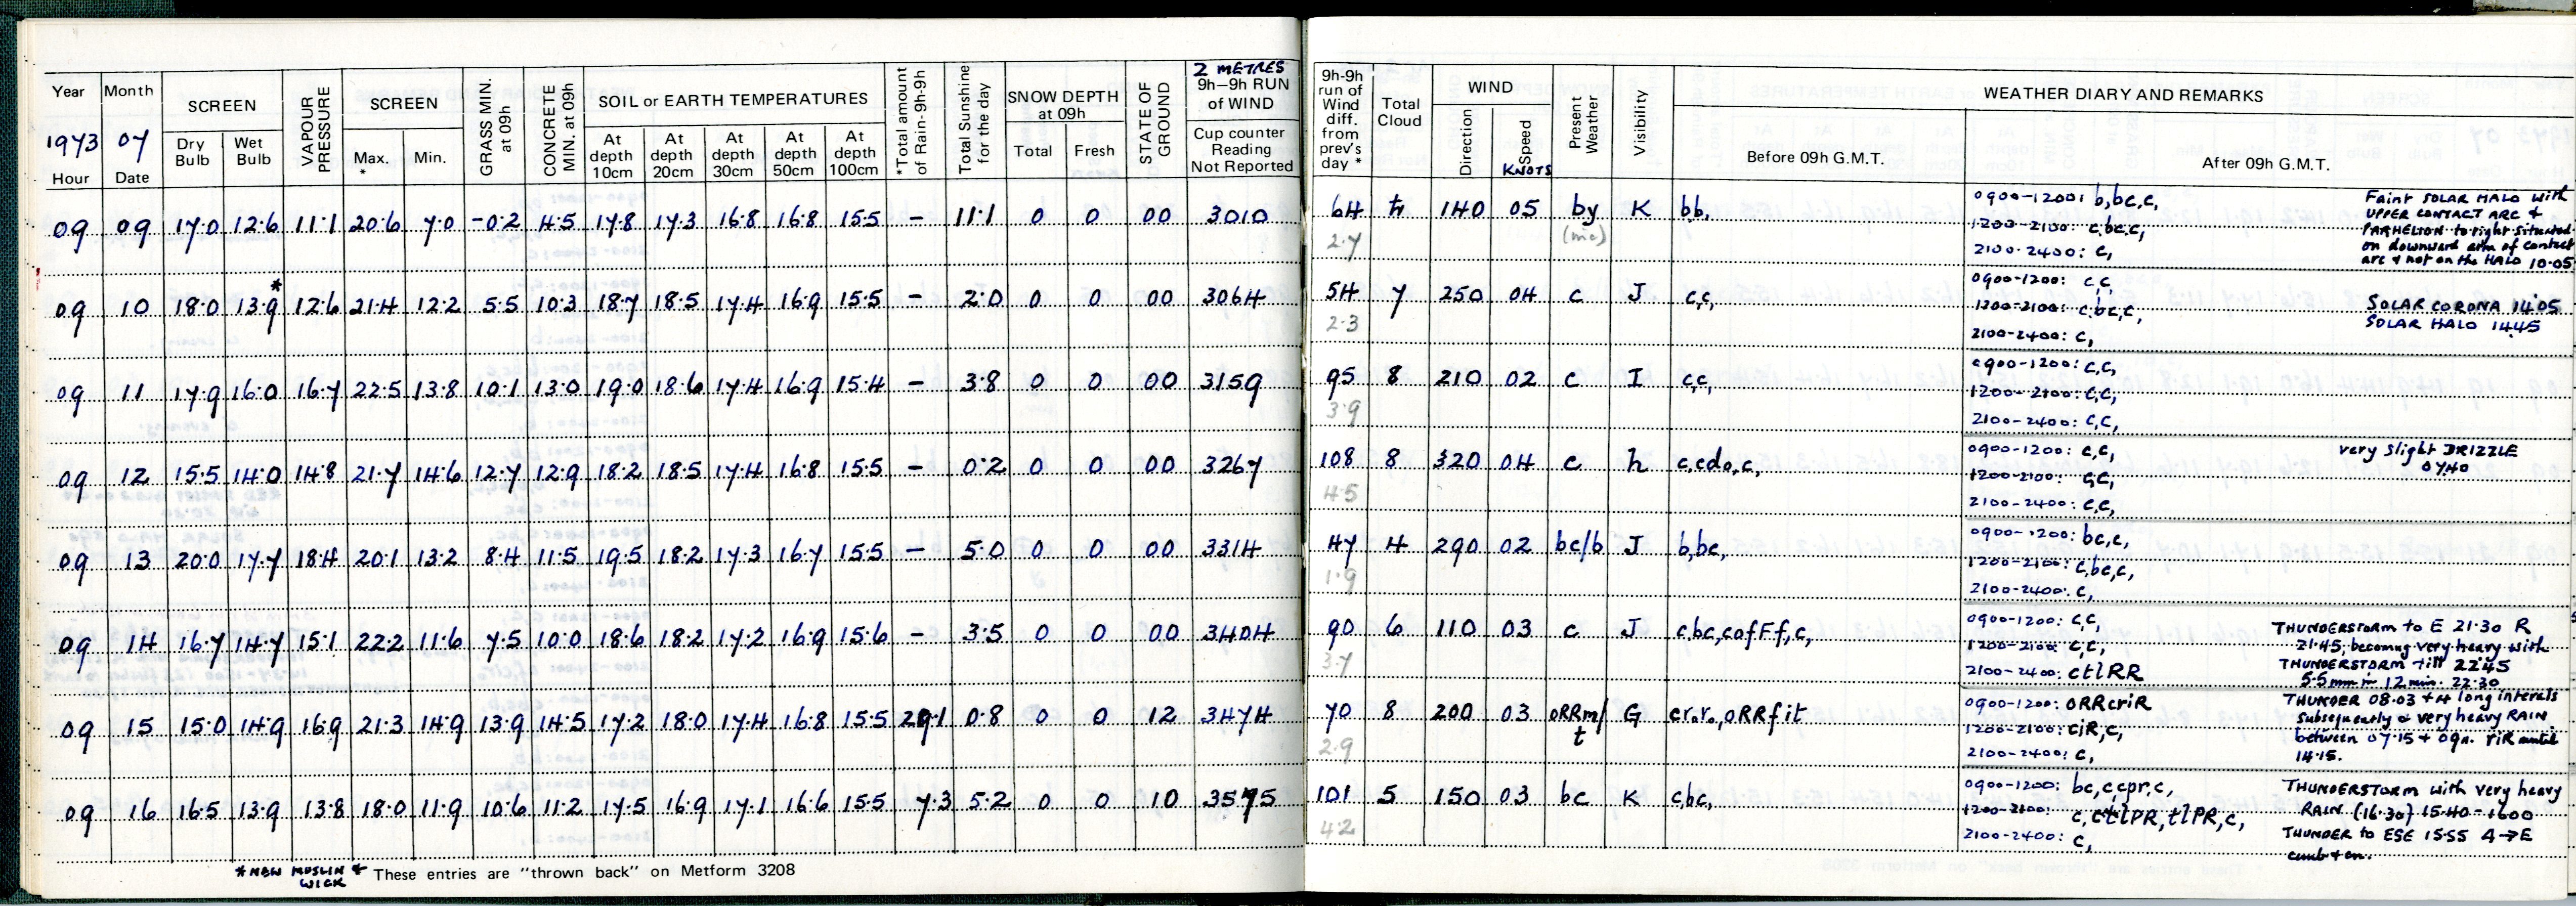 Year Month SCREEN VAPOUR PRESSURE SCREEN GRASS MIN. at 09h CONCRETE MIN. at 09h SOIL or EARTH TEMPERATURES *Total amount of Rain-9h-9h Total Sunshine for the day SNOW DEPTH at 09h STATE OF GROUND 2 METRES 9h–9h RUN of WIND
1973 07 Dry Bulb Wet Bulb Max. * Min. At depth 10cm At depth 20cm At depth 30cm At depth 50cm At depth 100cm Total Fresh Cup counter Reading Not Reported
Hour Date
09 09 17.0 12.6 11.1 20.6 7.0 -0.2 4.5 17.8 17.3 16.8 16.8 15.5 – 11.1 0 0 00 3010
09 10 18.0 13.9* 12.6 21.4 12.2 5.5 10.3 18.7 18.5 17.4 16.9 15.5 – 2.0 0 0 00 3064
09 11 17.9 16.0 16.7 22.5 13.8 10.1 13.0 19.0 18.6 17.4 16.9 15.4 – 3.8 0 0 00 3159
09 12 15.5 14.0 14.8 21.7 14.6 12.7 12.9 18.2 18.5 17.4 16.8 15.5 – 0.2 0 0 00 3267
09 13 20.0 17.7 18.4 20.1 13.2 8.4 11.5 19.5 18.2 17.3 16.7 15.5 – 5.0 0 0 00 3314
09 14 16.7 14.7 15.1 22.2 11.6 7.5 10.0 18.6 18.2 17.2 16.9 15.6 – 3.5 0 0 00 3404
09 15 15.0 14.9 16.9 21.3 14.9 13.9 14.5 17.2 18.0 17.4 16.8 15.5 29.1 0.8 0 0 12 3474
09 16 16.5 13.9 13.8 18.0 11.9 10.6 11.2 17.5 16.9 17.1 16.6 15.5 7.3 5.2 0 0 10 3575
* NEW MUSLIN + WICK
* These entries are "thrown back" on Metform 3208
9h-9h run of Wind diff. from prev's day * Total Cloud WIND Present Weather Visibility WEATHER DIARY AND REMARKS
Direction Speed KNOTS Before 09h G.M.T. After 09h G.M.T.
64 140 05 by K bb, 0900-1200: b,bc,c, Faint SOLAR HALO with
2.7 UPPER CONTACT ARC +
1200-2100: c,bc,c, PARHELION to right situated
2100-2400: c, on downward arm of contact
arc + not on the HALO 10.05
54 7 250 04 c J c,c, 0900-1200: c,c,
2.3 1200-2100: c,bc,c, SOLAR CORONA 14.05
2100-2400: c, SOLAR HALO 1445
95 8 210 02 c I c,c, 0900-1200: c,c,
3.9 1200-2100: c,c,
2100-2400: c,c,
108 8 320 04 c h c,cdo,c, 0900-1200: c,c, very slight DRIZZLE
4.5 1200-2100: c,c, 0740
2100-2400: c,c,
47 4 290 02 bc/b J b,bc, 0900-1200: bc,c,
1.9 1200-2100: c,bc,c,
2100-2400: c,
90 6 110 03 c J c,bc,cofFf,c, 0900-1200: c,c, THUNDERSTORM to E 21.30 R
3.7 1200-2100: c,c, 21.45, becoming very heavy with
2100-2400: ctlRR THUNDERSTORM till 2245
5.5mm in 12 min. 22.30
70 8 200 03 oRRm/t G cr.r.,oRRfit 0900-1200: oRRcriR THUNDER 08.03 + 4 long intervals
2.9 1200-2100: ciR,c, Subsequently & very heavy RAIN
2100-2400: c, between 07.15 + 09a. riR until
14.15.
101 5 150 03 bc K c,bc, 0900-1200: bc,c,cpr,c, THUNDERSTORM with very heavy
4.2 1200-2100: c,ctlPR,tlPR,c, RAIN (16.30) 15.40-1600
2100-2400: c, THUNDER to ESE 15.55 4→E